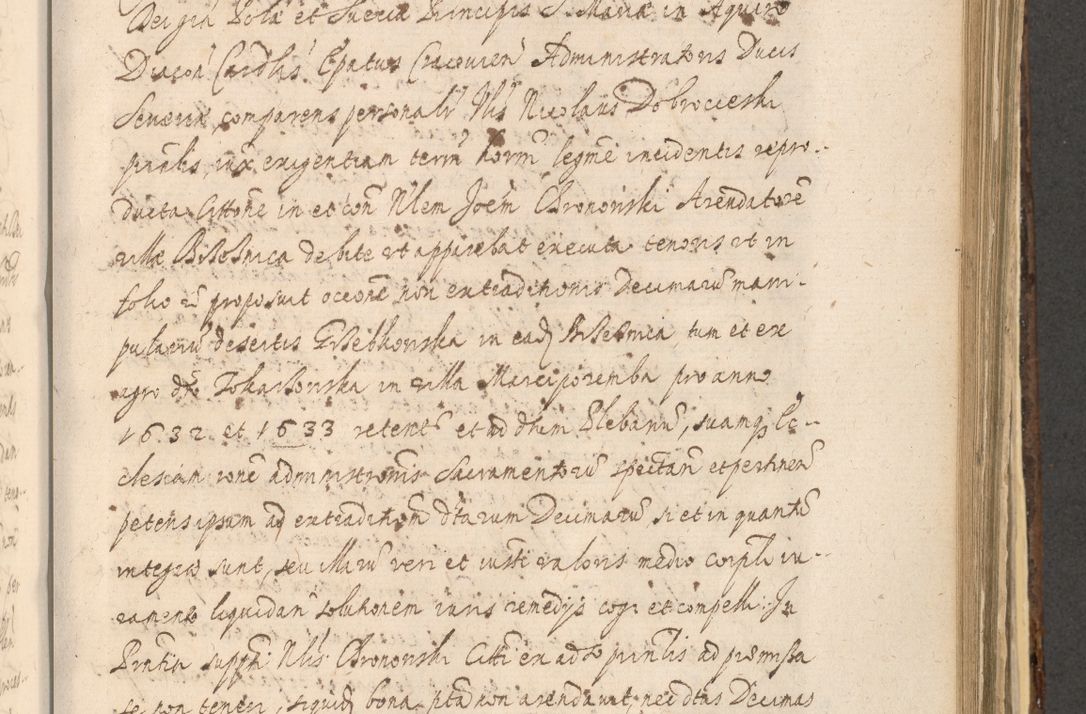 Dei gra Pola et Sueciæ Principis S. Mariæ in Aquiro
Diacon Cardlis Epatus Cracovien Administratoris Ducis
Severiæ comparens personalr Nlis Nicolaus Dobrocieski
pntlis iux exigentiam term horm legme incidentis repro-
ducta Cittone in et con Nlem Joem Chronowski Arendatore
villæ debite ut apparebat executa tenoris ut in
folio proposuit occone non extraditionis Decimaru mani-
pulariu desertis in ead tum et ex
agro dto Tokarkowska in villa Marciporemba pro anno
1632 et 1633 retent et ad dnm Plebanu, suamq Ec-
clesiam rone administronis Sacramentoru spectan et pertinen
petens ipsum ad extraditionem dtarum Decimaru si et in quantu
integræ sunt, seu illaru veri et iusti valoris medio corpli iu-
ramento liquidan solutionem iuris remedijs cogi et compelli. In
Pntia Nlis Chronowski Citti ex ad to pnntlis ad præmissa
se non teneri, siquid bona pta non arendavit, nec dtas Decimas